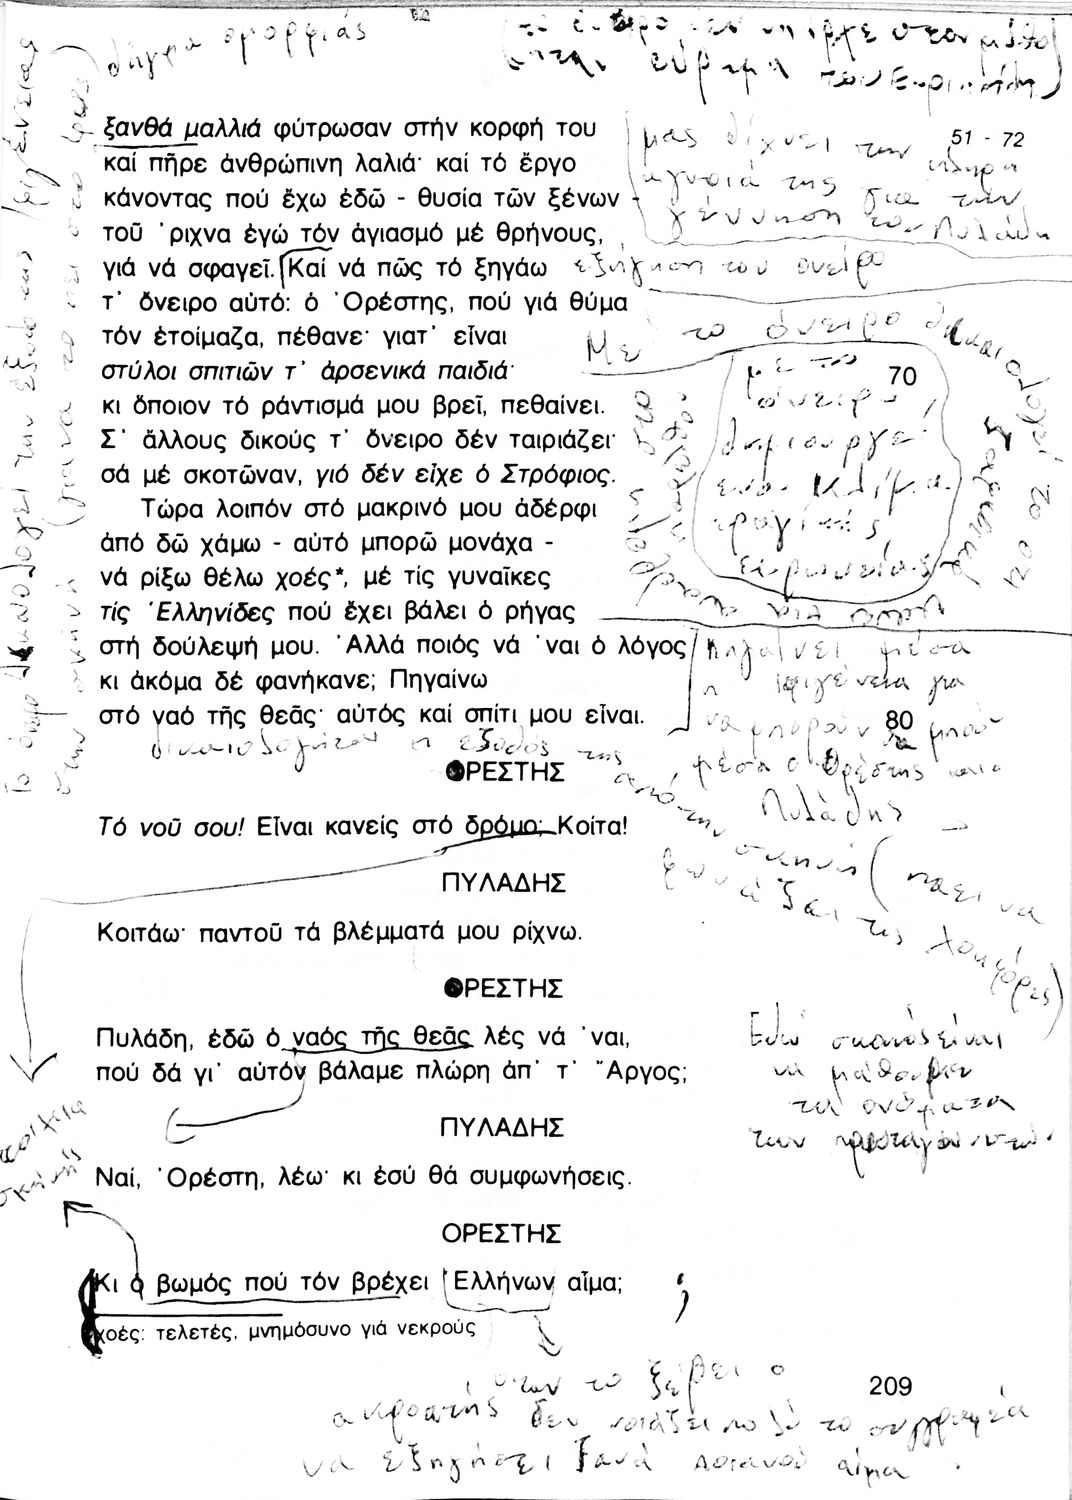 δείγμα ομορφιάς
(το όνειρο δεν υπήρχε στον μύθο
ήταν εύρημα του Ευριπίδη)
ξανθά μαλλιά φύτρωσαν στήν κορφή του
καί πῆρε ἀνθρώπινη λαλιά· καί τό ἔργο
κάνοντας πού ἔχω ἐδῶ - θυσία τῶν ξένων -
τοῦ ᾽ριχνα ἐγώ τόν ἁγιασμό μέ θρήνους,
γιά νά σφαγεῖ. Καί νά πῶς τό ξηγάω
τ᾽ ὄνειρο αὐτό: ὁ ᾽Ορέστης, πού γιά θύμα
τόν ἑτοίμαζα, πέθανε· γιατ᾽ εἶναι
στύλοι σπιτιῶν τ᾽ ἀρσενικά παιδιά·
κι ὅποιον τό ράντισμά μου βρεῖ, πεθαίνει.
Σ᾽ ἄλλους δικούς τ᾽ ὄνειρο δέν ταιριάζει·
σά μέ σκοτῶναν, γιό δέν εἶχε ὁ Στρόφιος.
Τώρα λοιπόν στό μακρινό μου ἀδέρφι
ἀπό δῶ χάμω - αὐτό μπορῶ μονάχα -
νά ρίξω θέλω χοές*, μέ τίς γυναῖκες
τίς ῾Ελληνίδες πού ἔχει βάλει ὁ ρήγας
στή δούλεψή μου. ᾽Αλλά ποιός νά ᾽ναι ὁ λόγος
κι ἀκόμα δέ φανήκανε; Πηγαίνω
στό ναό τῆς θεᾶς· αὐτός καί σπίτι μου εἶναι.
51 - 72
μας δίχνει την
σιγουριά της για την
γέννηση του Πυλάδη
εξήγηση του ονείρο
Με το όνειρο δικαιολογεί το
70
με το
όνειρο
δημιουργεί
ένα κλίμα
τραγικής
ειρωνείας
αναδρομή στο παρελθόν
πηγαίνει μέσα
η Ιφιγένεια για
να μπορούν να μπού
μέσα ο Ορέστης και ο
Πυλάδης
80
δικαιολογήται η έξοδός της από την σκηνή (πάει να
φωνάξει τις
Το όνειρο δικαιολογεί την έξοδο της Ιφιγένειας
στην σκηνή (για να το πει στο φως)
ΟΡΕΣΤΗΣ
Τό νοῦ σου! Εἶναι κανείς στό δρόμο; Κοίτα!
ΠΥΛΑΔΗΣ
Κοιτάω· παντοῦ τά βλέμματά μου ρίχνω.
ΟΡΕΣΤΗΣ
Πυλάδη, ἐδῶ ὁ ναός τῆς θεᾶς λές νά ᾽ναι,
πού δά γι᾽ αὐτόν βάλαμε πλώρη ἀπ᾽ τ᾽ ῎Αργος;
Εδώ σκοπός είναι
να μάθουμε
τα ονόματα
των πρωταγωνιστών
ΠΥΛΑΔΗΣ
Ναί, ᾽Ορέστη, λέω· κι ἐσύ θά συμφωνήσεις.
σκηνής
ΟΡΕΣΤΗΣ
Κι ὁ βωμός πού τόν βρέχει ῾Ελλήνων αἷμα;
;
χοές: τελετές, μνημόσυνο γιά νεκρούς
όταν το ξέρει ο
ακροατής δεν νοιάζει πολύ το συγγραφέα
να εξηγήσει ξανά ποιανού αίμα
209